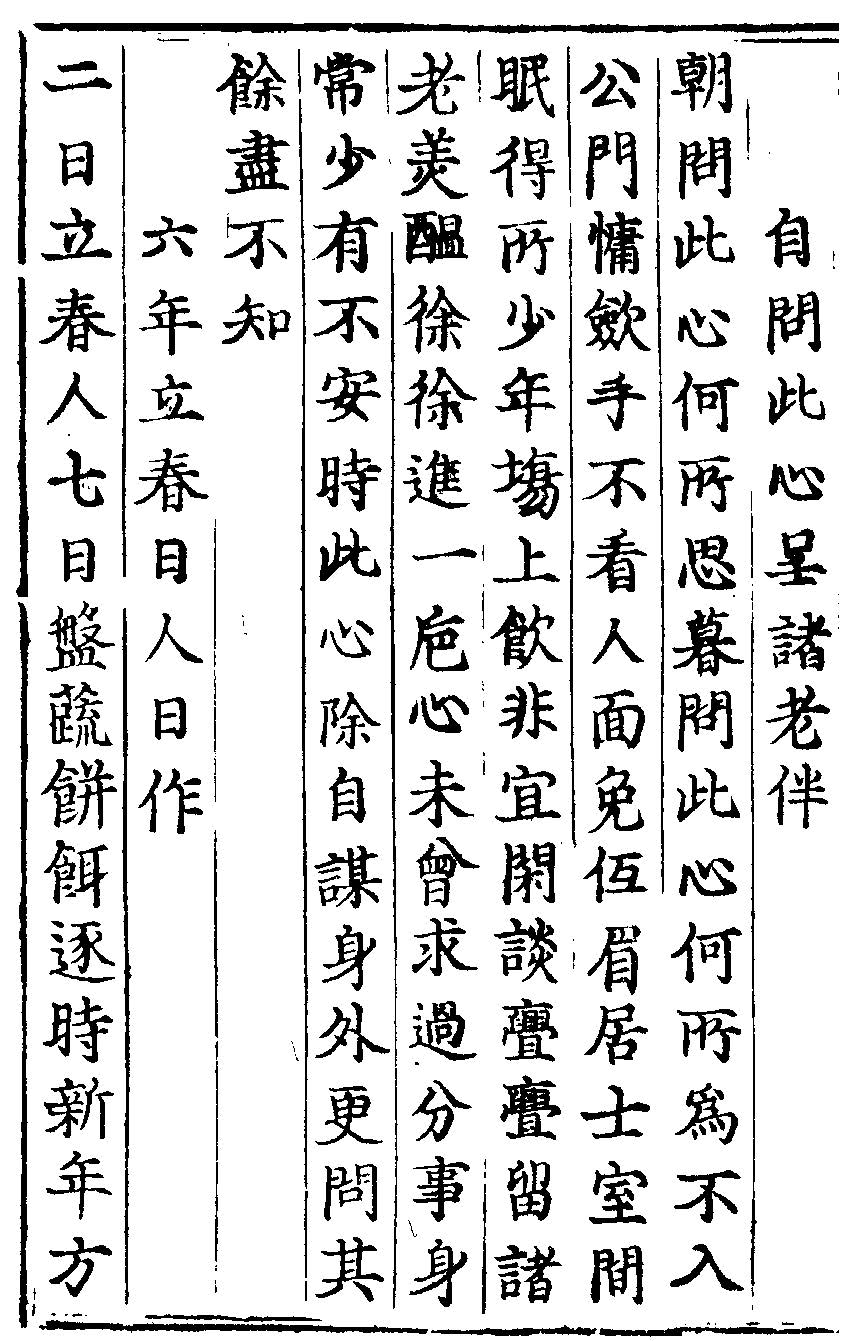 自問此心呈諸老伴
朝問此心何所思暮問此心何所爲不入
公門慵斂手不看人面免佢眉居士室間
眠得所少年塲上飮非宜閑談亹亹留諸
老美醞徐徐進一巵心未曾求過分事身
常少有不安時此心除自謀身外更問其
餘盡不知
六年立春日人日作
二日立春人七日盤蔬餅餌逐時新年方